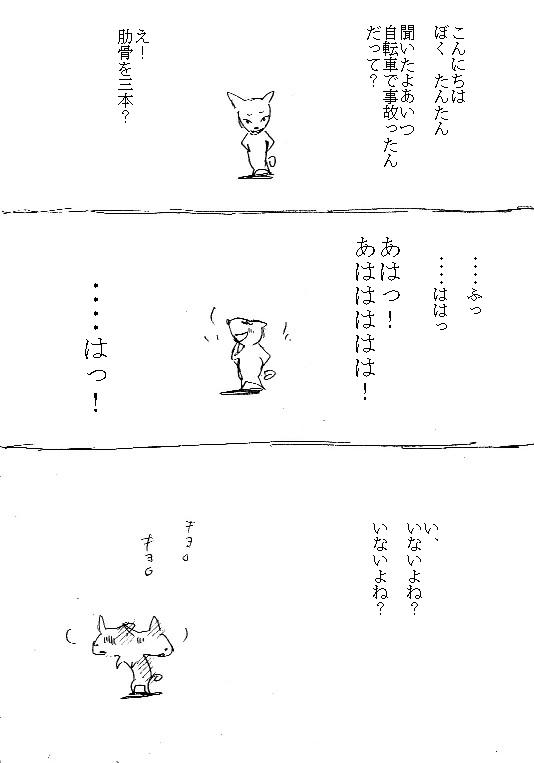 こんにちは
ぼく　たんたん
聞いたよあいつ
自転車で事故ったん
だって？
え！
肋骨を三本？
‥‥ふっ
‥‥ははっ
あはっ！
あはははははは！
‥‥はっ！
い、
いないよね？
いないよね？
キョロ
キョロ